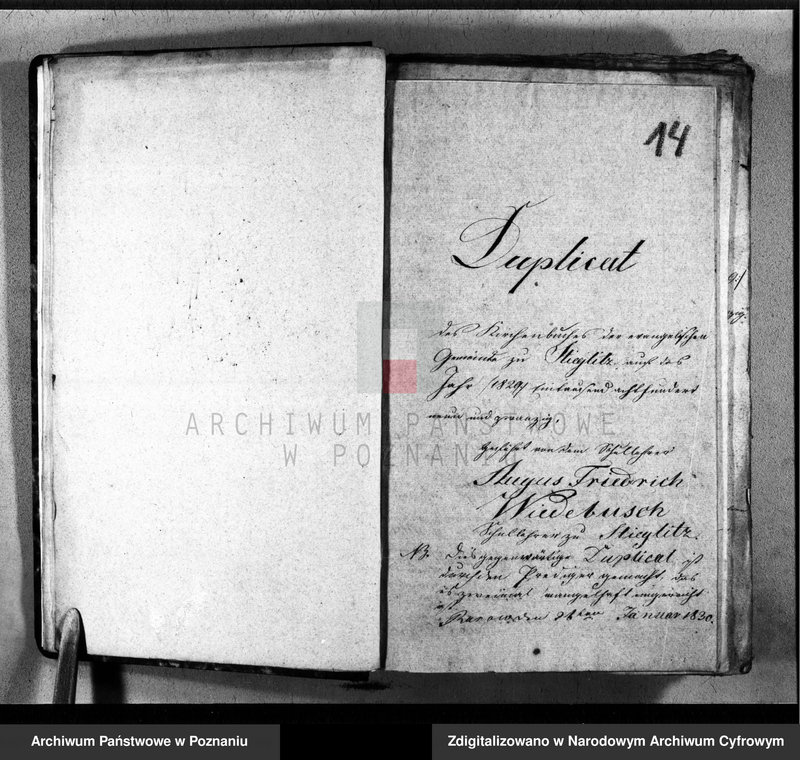 14
Duplicat
des Kirchenbuches der evangelischen
Gemeinde zu Stieglitz auf das
Jahr /1829/ Eintausend achthundert
neun und zwanzig
geführt von dem Schullehrer
August Friedrich
Wiedebusch
Schullehrer zu Stieglitz.
NB. Dies gegenwärtige Duplicat ist
durch den Prediger gemacht, das
mangelhaft eingereicht
ist
den Januar 1830.
ARCHIWUM PAŃSTWOWE
W POZNANIU
Archiwum Państwowe w Poznaniu
Zdigitalizowano w Narodowym Archiwum Cyfrowym